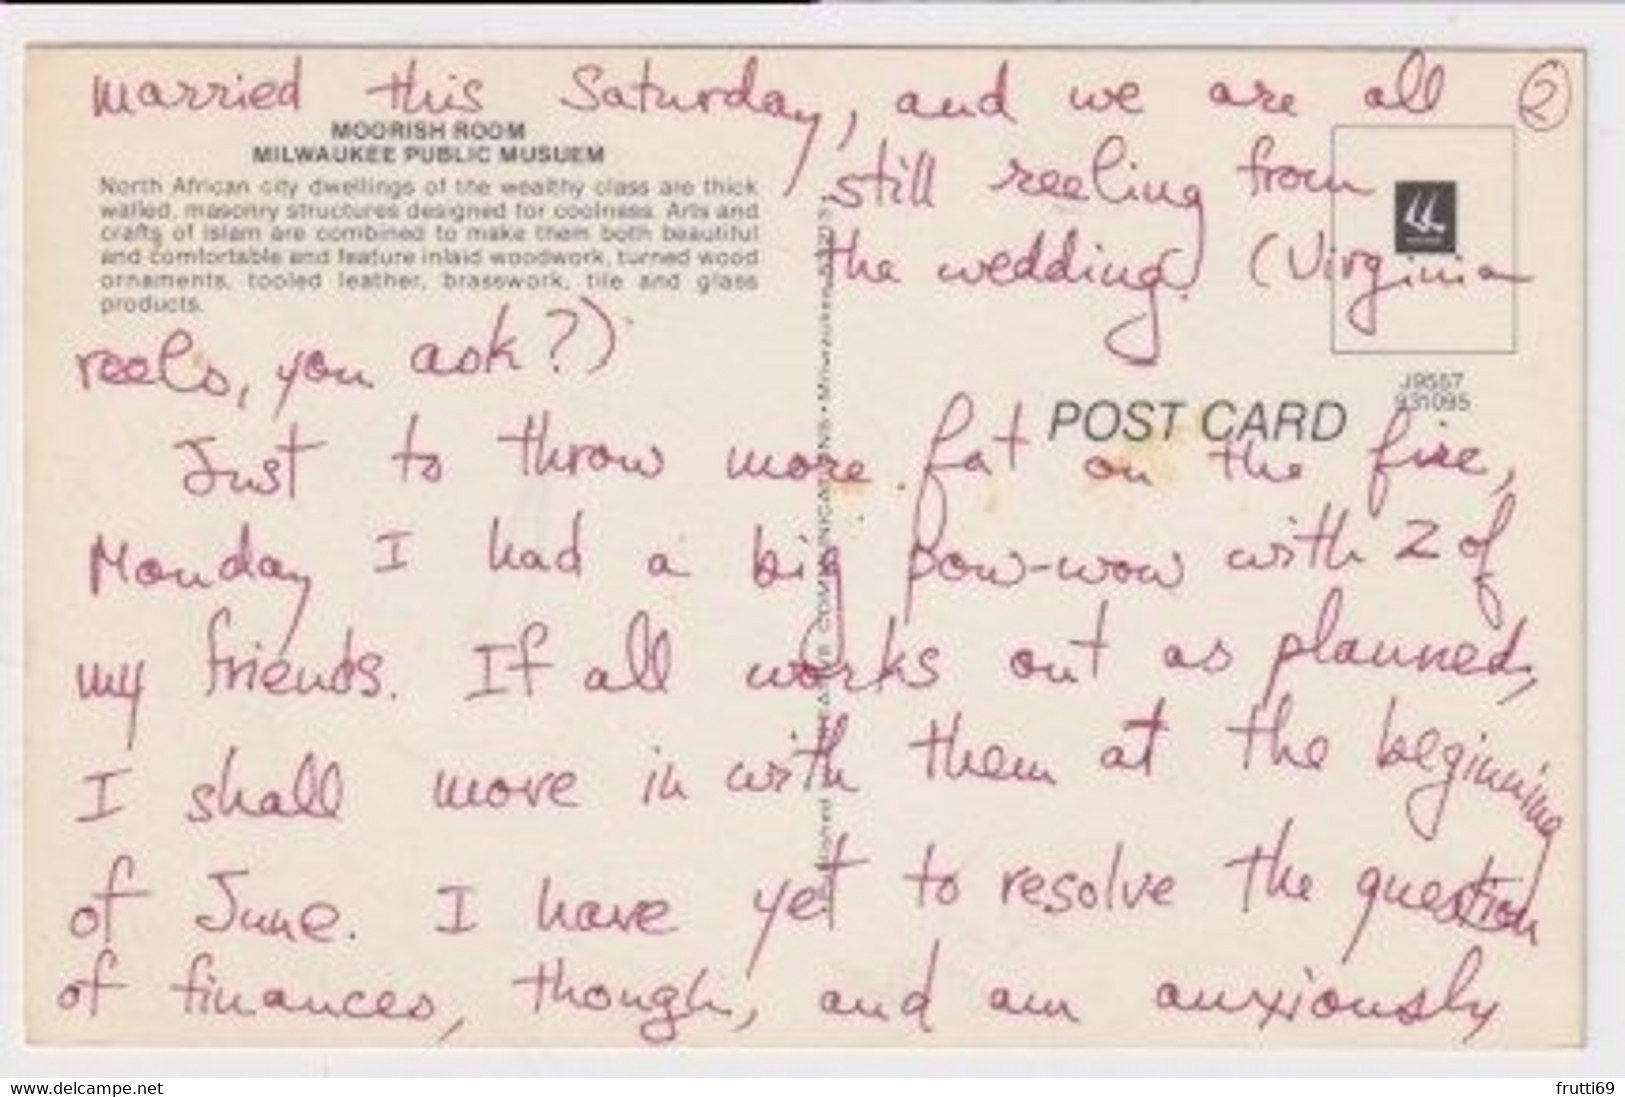 married this Saturday, and we are all ②
MOORISH ROOM
MILWAUKEE PUBLIC MUSUEM
North African city dwellings of the wealthy class are thick
walled, masonry structures designed for coolness. Arts and
crafts of Islam are combined to make them both beautiful
and comfortable and feature inlaid woodwork, turned wood
ornaments, tooled leather, brasswork, tile and glass
products.
still reeling from
the wedding. (Virginia
reels, you ask?)
J9557
931095
POST CARD
Just to throw more fat on the fire,
Monday I had a big pow-wow with 2 of
my friends. If all works out as planned,
I shall move in with them at the beginning
of June. I have yet to resolve the question
of finances, though, and am anxiously
www.delcampe.net
frutti69